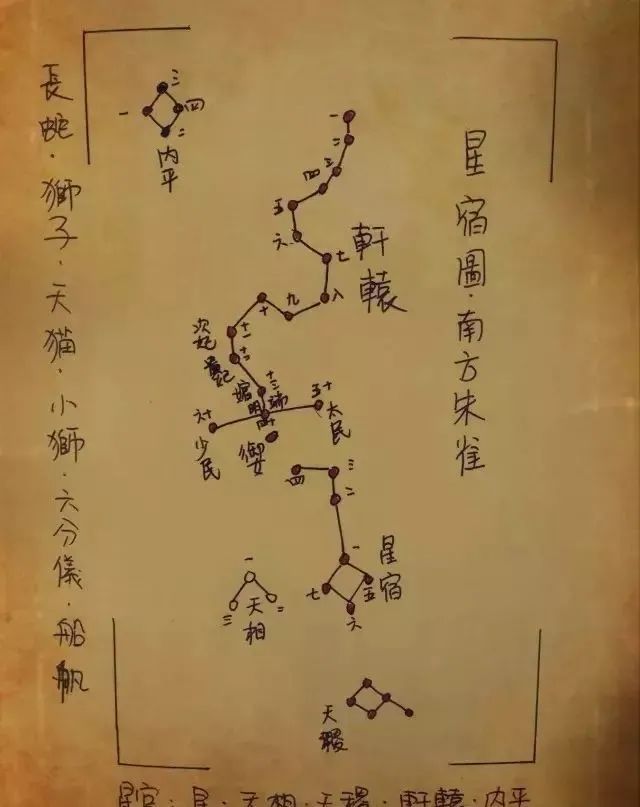 星宿圖·南方朱雀
長蛇·獅子·天猫·小獅·六分儀·船帆
三
一
四
二
内平
一
二
三
四
五
六
七
八
九
十
十一
十二
十三
軒轅
次妃
五十
太民
六十
少民
御女
四
三
二
一
五
六
七
星宿
一
二
三
天相
天稷
星官：星·天相·天稷·軒轅·内平